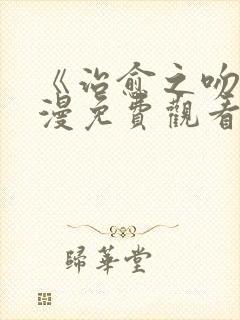 《治愈之吻
漫免費觀看
歸華堂